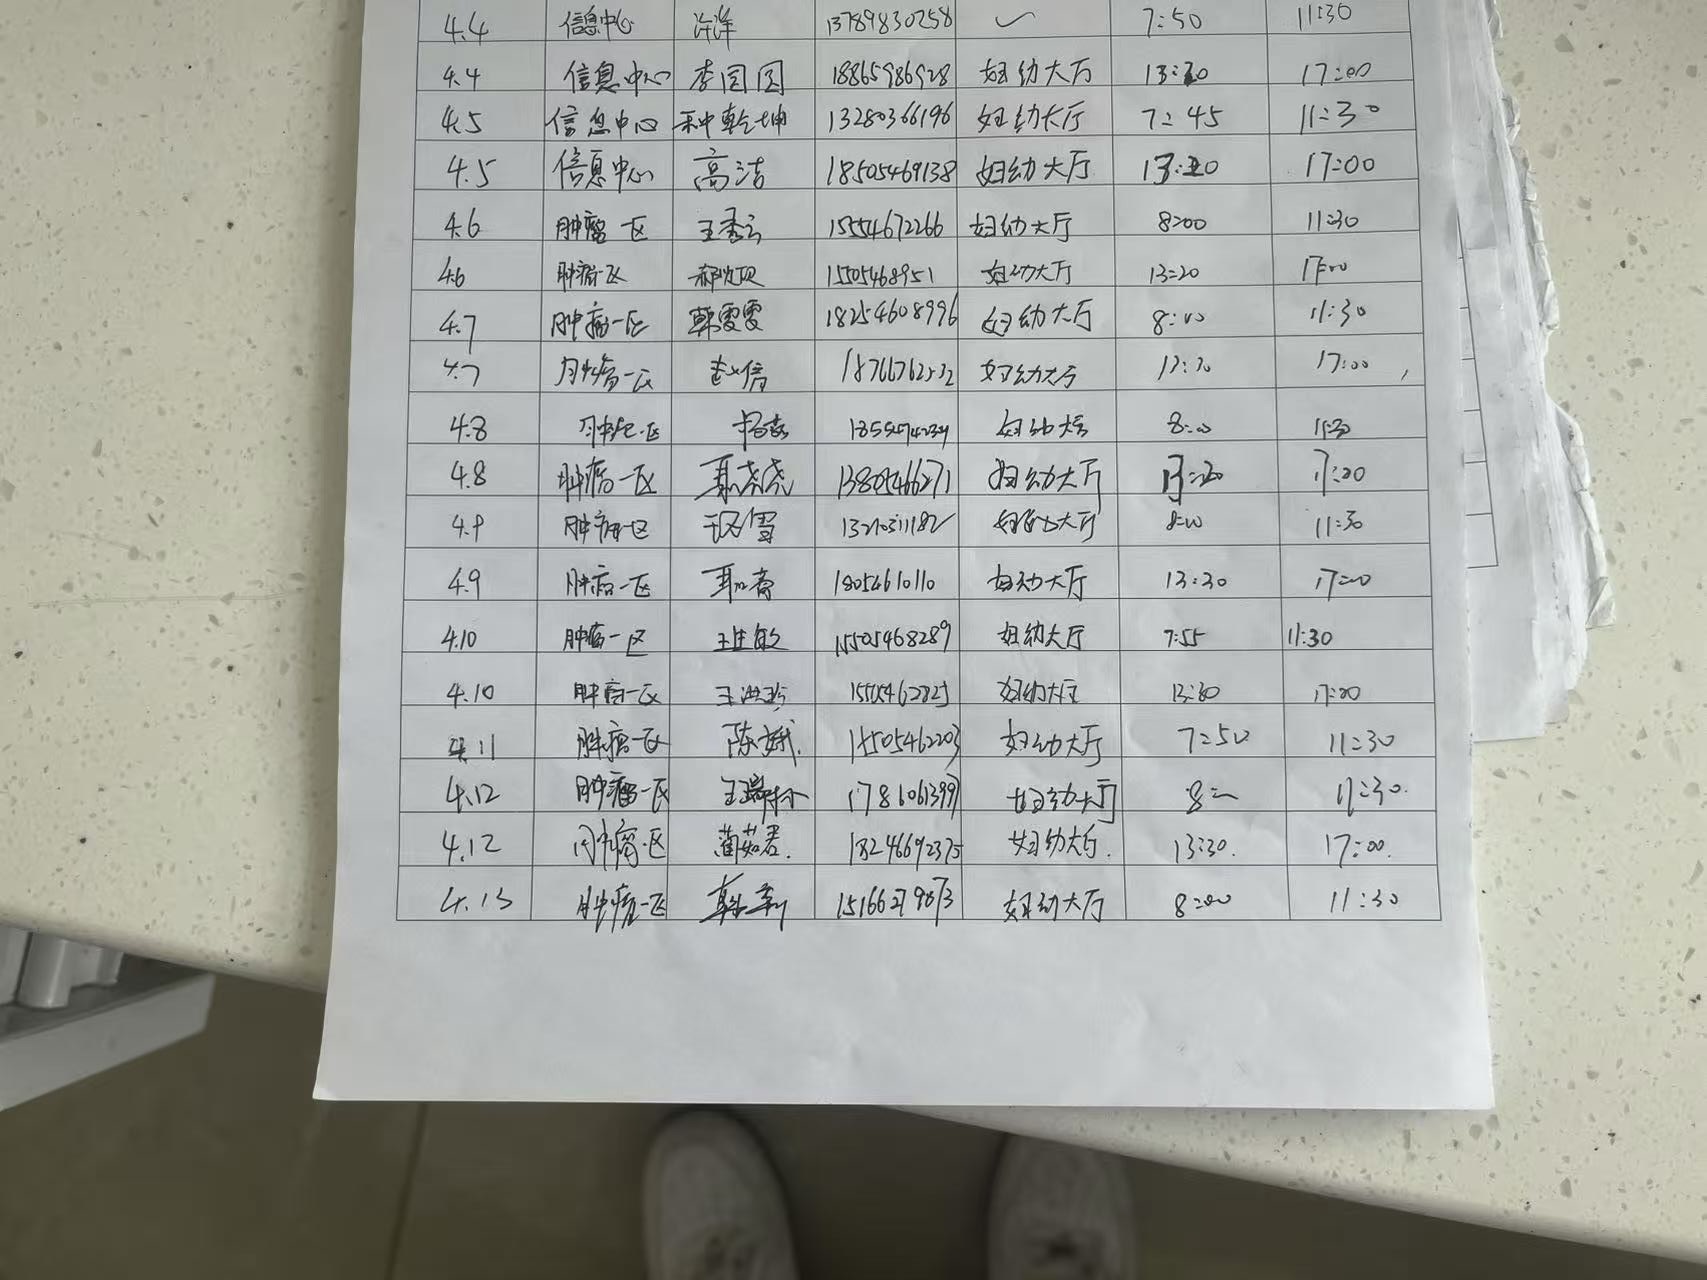 4.4 信息中心 许洋 13789830258 ✓ 7:50 11:30
4.4 信息中心 李园园 18865986928 妇幼大厅 13:20 17:00
4.5 信息中心 种乾坤 13280366196 妇幼大厅 7:45 11:30
4.5 信息中心 高洁 18505469138 妇幼大厅 13:20 17:00
4.6 肿瘤一区 王秀云 15554672266 妇幼大厅 8:00 11:30
4.6 肿瘤一区 1505468951 妇幼大厅 13:20 17:00
4.7 肿瘤一区 韩雯雯 18254608996 妇幼大厅 8:00 11:30
4.7 肿瘤一区 赵倩 妇幼大厅 13:30 17:00
4.8 肿瘤一区 妇幼大厅 8:00 11:30
4.8 肿瘤一区 聂尧尧 13805466271 妇幼大厅 17:00
4.9 肿瘤一区 妇幼大厅 8:00 11:30
4.9 肿瘤一区 18054610110 妇幼大厅 13:30 17:00
4.10 肿瘤一区 15505468289 妇幼大厅 7:55 11:30
4.10 肿瘤一区 王洪玲 妇幼大厅 13:30 17:00
4.11 肿瘤一区 陈娥 18505462203 妇幼大厅 7:50 11:30
4.12 肿瘤一区 王瑞林 17861061399 妇幼大厅 8: 11:30
4.12 肿瘤一区 蔺茹君 18246692375 妇幼大厅 13:30 17:00
4.13 肿瘤一区 妇幼大厅 8:00 11:30